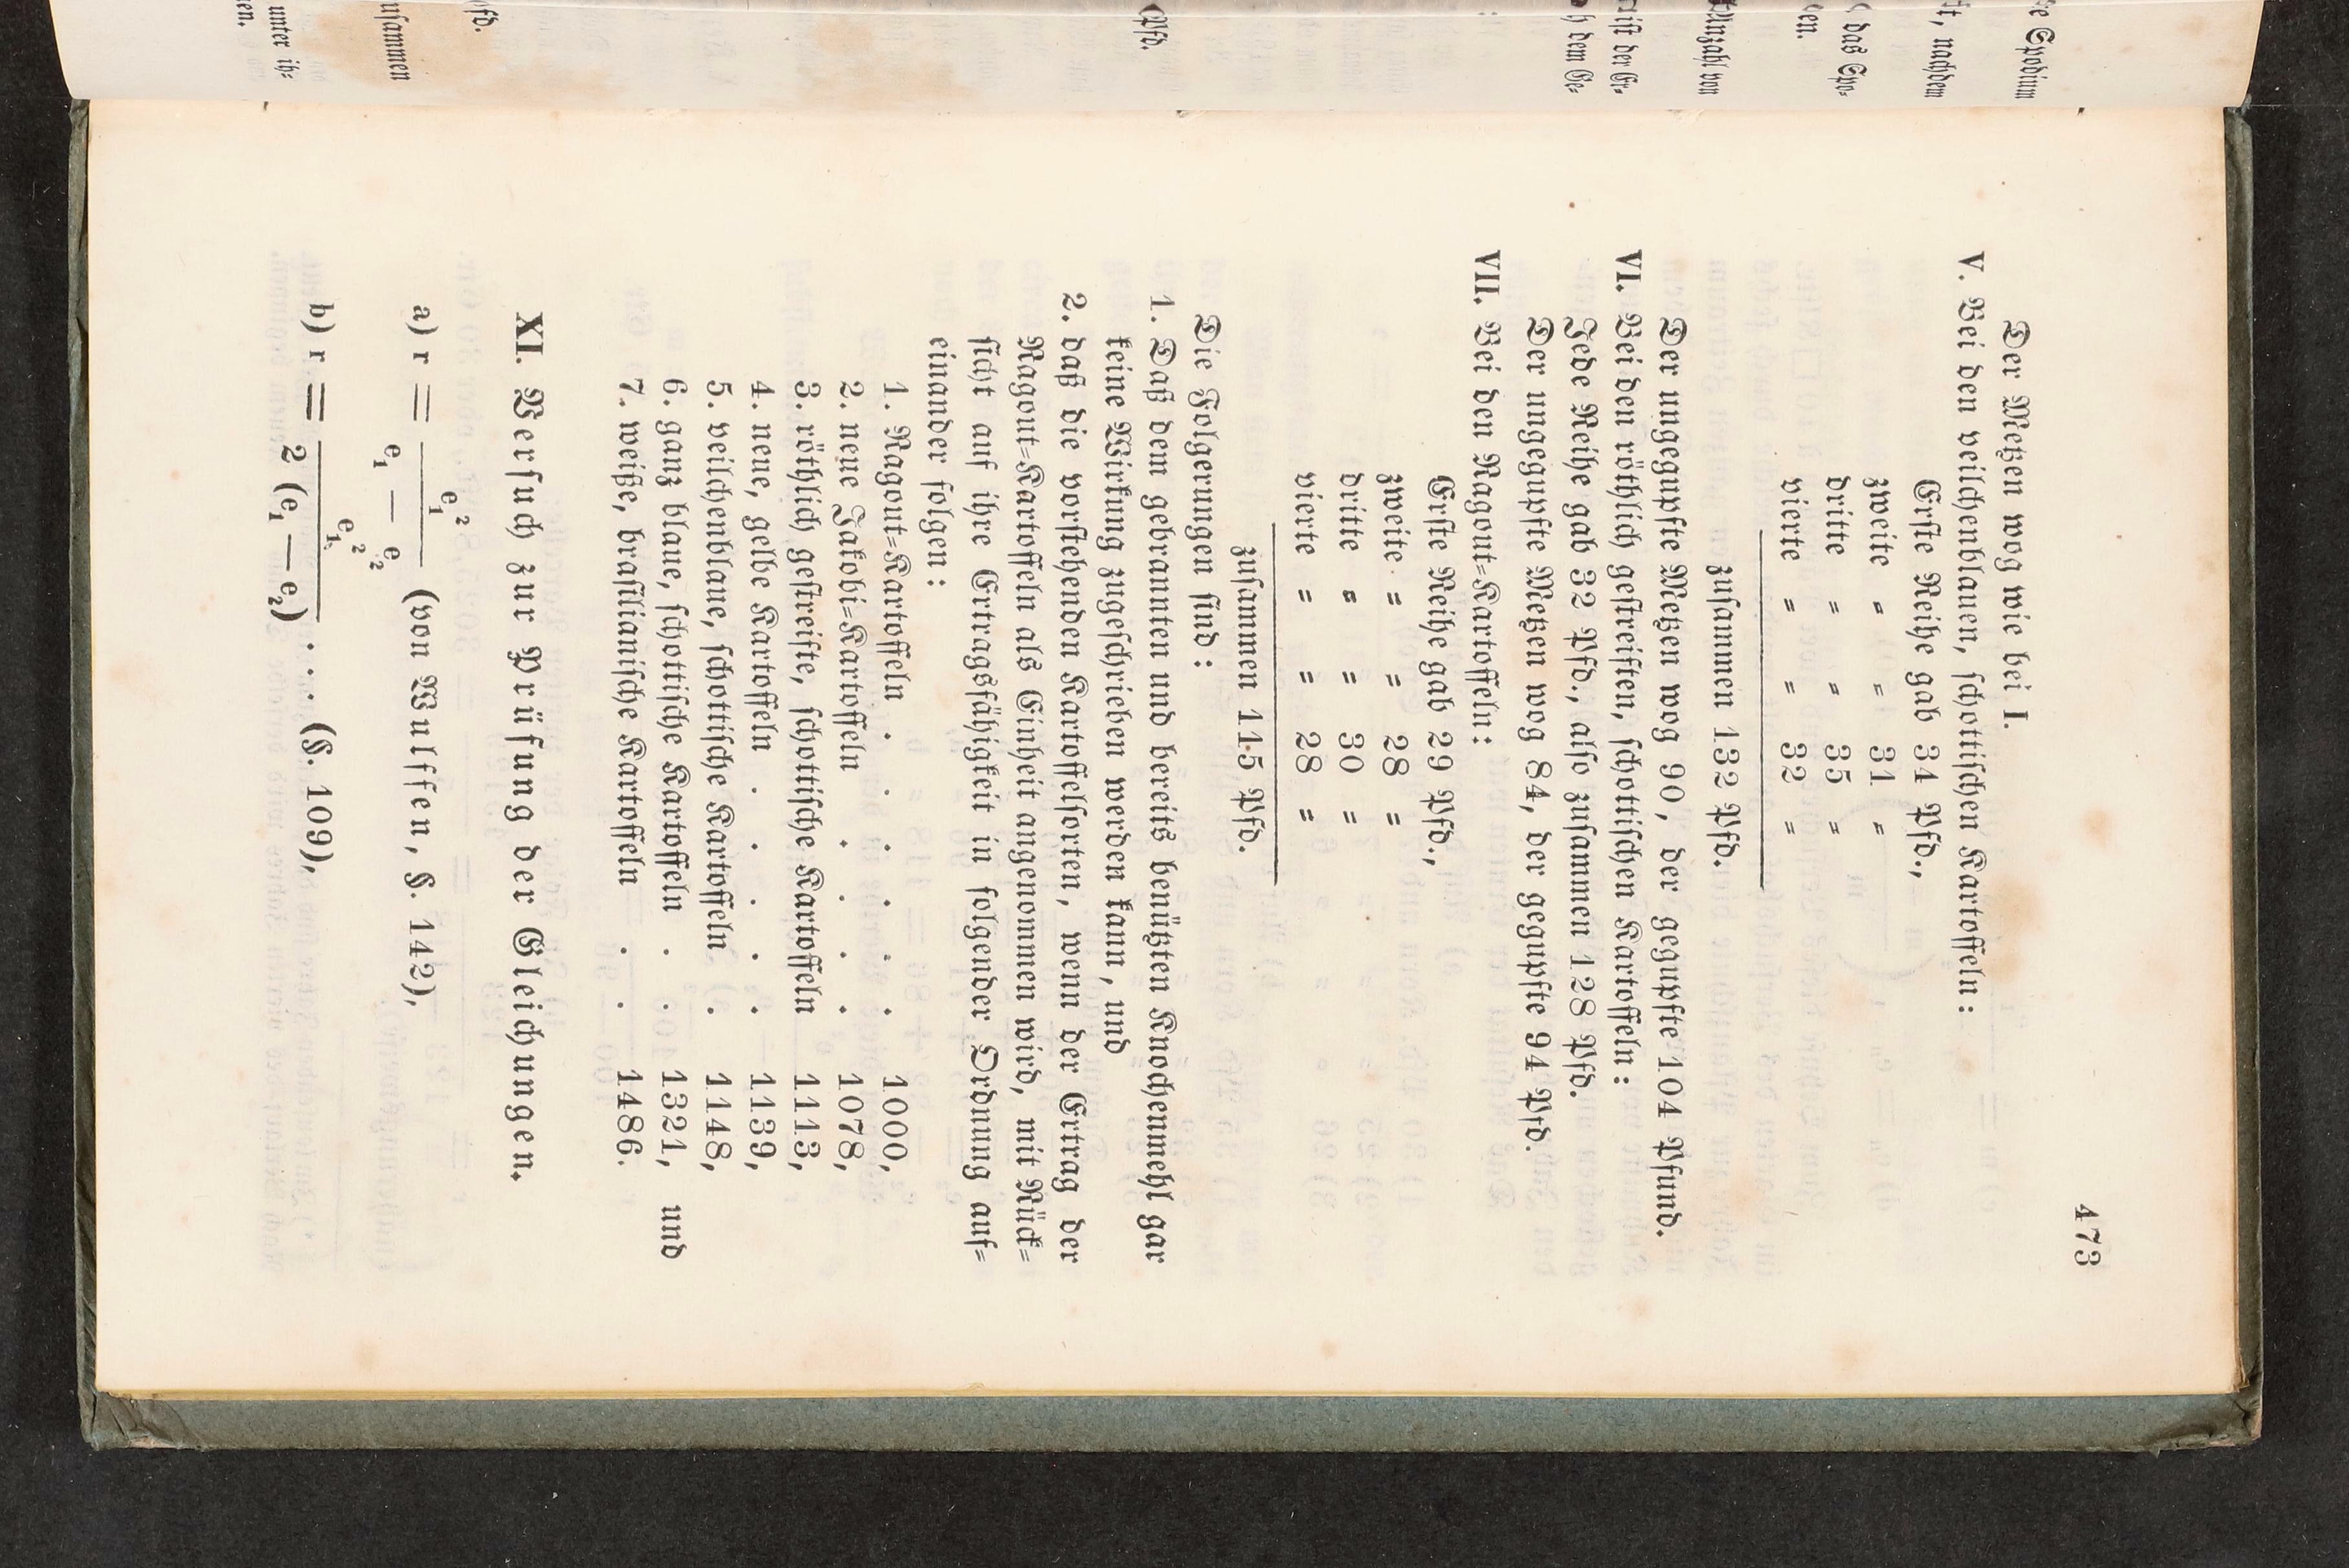 473
Der Metzen wog wie bei I.
V. Bei den veilchenblauen, schottischen Kartoffeln:
Erste Reihe gab 34 Pfd.,
zweite = = 31 =
dritte = = 35 =
vierte = = 32 =
zusammen 132 Pfd.
Der ungegupfte Metzen wog 90, der gegupfte 104 Pfund.
VI. Bei den röthlich gestreiften, schottischen Kartoffeln:
Jede Reihe gab 32 Pfd., also zusammen 128 Pfd.
Der ungegupfte Metzen wog 84, der gegupfte 94 Pfd.
VII. Bei den Ragout=Kartoffeln:
Erste Reihe gab 29 Pfd.,
zweite = = 28 =
dritte = = 30 =
vierte = = 28 =
zusammen 115 Pfd.
Die Folgerungen sind:
1. Daß dem gebrannten und bereits benützten Knochenmehl gar
keine Wirkung zugeschrieben werden kann, und
2. daß die vorstehenden Kartoffelsorten, wenn der Ertrag der
Ragout=Kartoffeln als Einheit angenommen wird, mit Rück=
sicht auf ihre Ertragsfähigkeit in folgender Ordnung auf=
einander folgen:
1. Ragout=Kartoffeln . . . . . . 1000,
2. neue Jakobi=Kartoffeln . . . . 1078,
3. röthlich gestreifte, schottische Kartoffeln 1113,
4. neue, gelbe Kartoffeln . . . . . 1139,
5. veilchenblaue, schottische Kartoffeln . 1148,
6. ganz blaue, schottische Kartoffeln . . 1321, und
7. weiße, brasilianische Kartoffeln . . 1486.
XI. Versuch zur Prüfung der Gleichungen.
a) r = e₁² / (e₁ — e₂) (von Wulffen, S. 142),
b) r = e₁² / 2 (e₁ — e₂) . . . (S. 109),
e Spodium
ft, nachdem
das Spo=
en.
Anzahl von
ist der Er=
h dem Ge=
Pfd.
fd.
usammen
unter ih=
en.